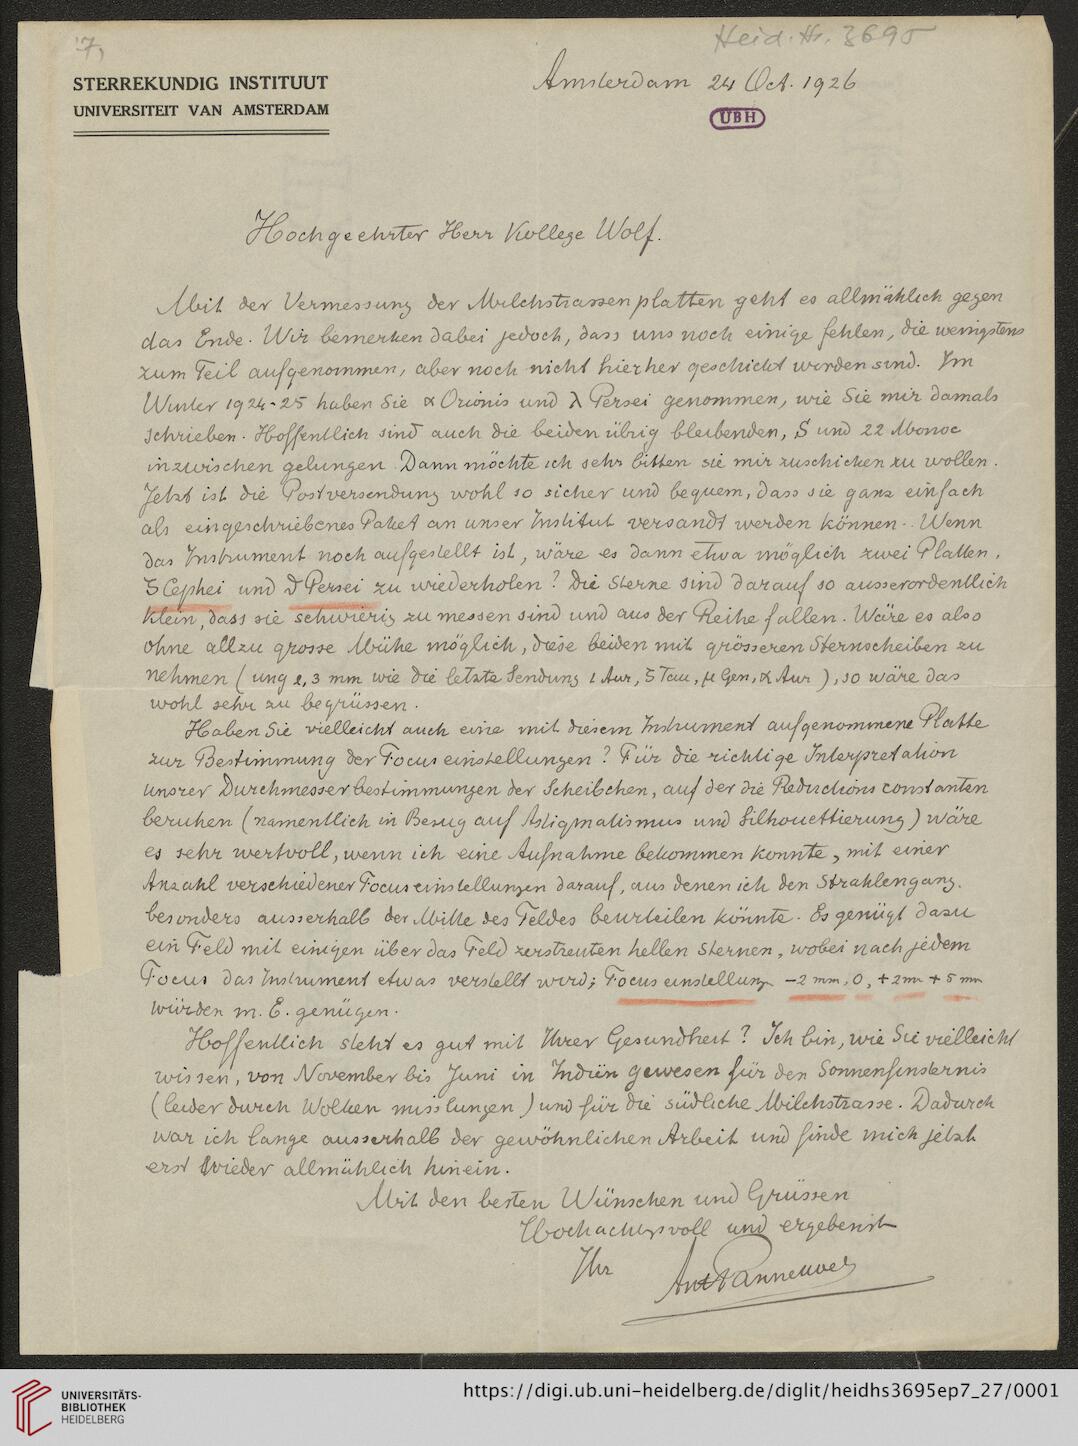 7,
Heid. Hs. 3695
STERREKUNDIG INSTITUUT
UNIVERSITEIT VAN AMSTERDAM
Amsterdam 24 Oct. 1926
UBH
Hochgeehrter Herr Kollege Wolf.
Mit der Vermessung der Milchstrassenplatten geht es allmählich gegen
das Ende. Wir bemerken dabei jedoch, dass uns noch einige fehlen, die wenigstens
zum Teil aufgenommen, aber noch nicht hierher geschickt worden sind. Im
Winter 1924-25 haben Sie α Orionis und λ Persei genommen, wie Sie mir damals
schrieben. Hoffentlich sind auch die beiden übrig bleibenden, S und 22 Monoc
inzwischen gelungen. Dann möchte ich sehr bitten sie mir zuschicken zu wollen.
Jetzt ist die Postversendung wohl so sicher und bequem, dass sie ganz einfach
als eingeschriebenes Paket an unser Institut versandt werden können. Wenn
das Instrument noch aufgestellt ist, wäre es dann etwa möglich zwei Platten,
Cephei und Persei zu wiederholen? Die Sterne sind darauf so ausserordentlich
klein, dass sie schwierig zu messen sind und aus der Reihe fallen. Wäre es also
ohne allzu grosse Mühe möglich, diese beiden mit grösseren Sternscheiben zu
nehmen (ung 0,3 mm wie die letzte Sendung ι Aur, ζ Tau, μ Gem, α Aur), so wäre das
wohl sehr zu begrüssen.
Haben Sie vielleicht auch eine mit diesem Instrument aufgenommene Platte
zur Bestimmung der Focuseinstellungen? Für die richtige Interpretation
unsrer Durchmesserbestimmungen der Scheibchen, auf der die Reductionsconstanten
beruhen (namentlich in Bezug auf Astigmatismus und Silhouettierung) wäre
es sehr wertvoll, wenn ich eine Aufnahme bekommen konnte, mit einer
Anzahl verschiedener Focuseinstellungen darauf, aus denen ich den Strahlengang,
besonders ausserhalb der Mitte des Feldes beurteilen könnte. Es genügt dazu
ein Feld mit einigen über das Feld zerstreuten hellen Sternen, wobei nach jedem
Focus das Instrument etwas verstellt wird; Focuseinstellung −2 mm, 0, +2 mm +5 mm
würden m. E. genügen.
Hoffentlich steht es gut mit Ihrer Gesundheit? Ich bin, wie Sie vielleicht
wissen, von November bis Juni in Indien gewesen für den Sonnenfinsternis
(leider durch Wolken misslungen) und für die südliche Milchstrasse. Dadurch
war ich lange ausserhalb der gewöhnlichen Arbeit und finde mich jetzt
erst wieder allmählich hinein.
Mit den besten Wünschen und Grüssen
Hochachtgsvoll und ergebenst
Ihr Ant Pannekoek
UNIVERSITÄTS-
BIBLIOTHEK
HEIDELBERG
https://digi.ub.uni-heidelberg.de/diglit/heidhs3695ep7_27/0001